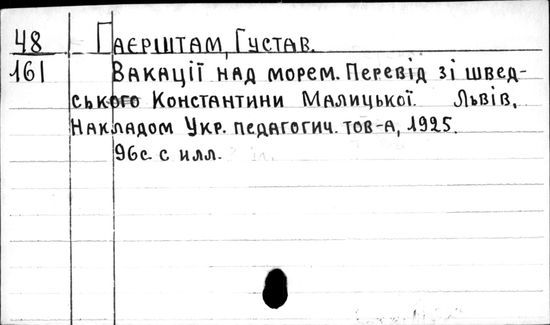 48 Гаєрштам, Густав.
161 Вакації над морем. Перевід зі швед-
ського Константини Малицької. Львів,
Накладом Укр. педагогич. тов-а, 1925.
96с. с илл.